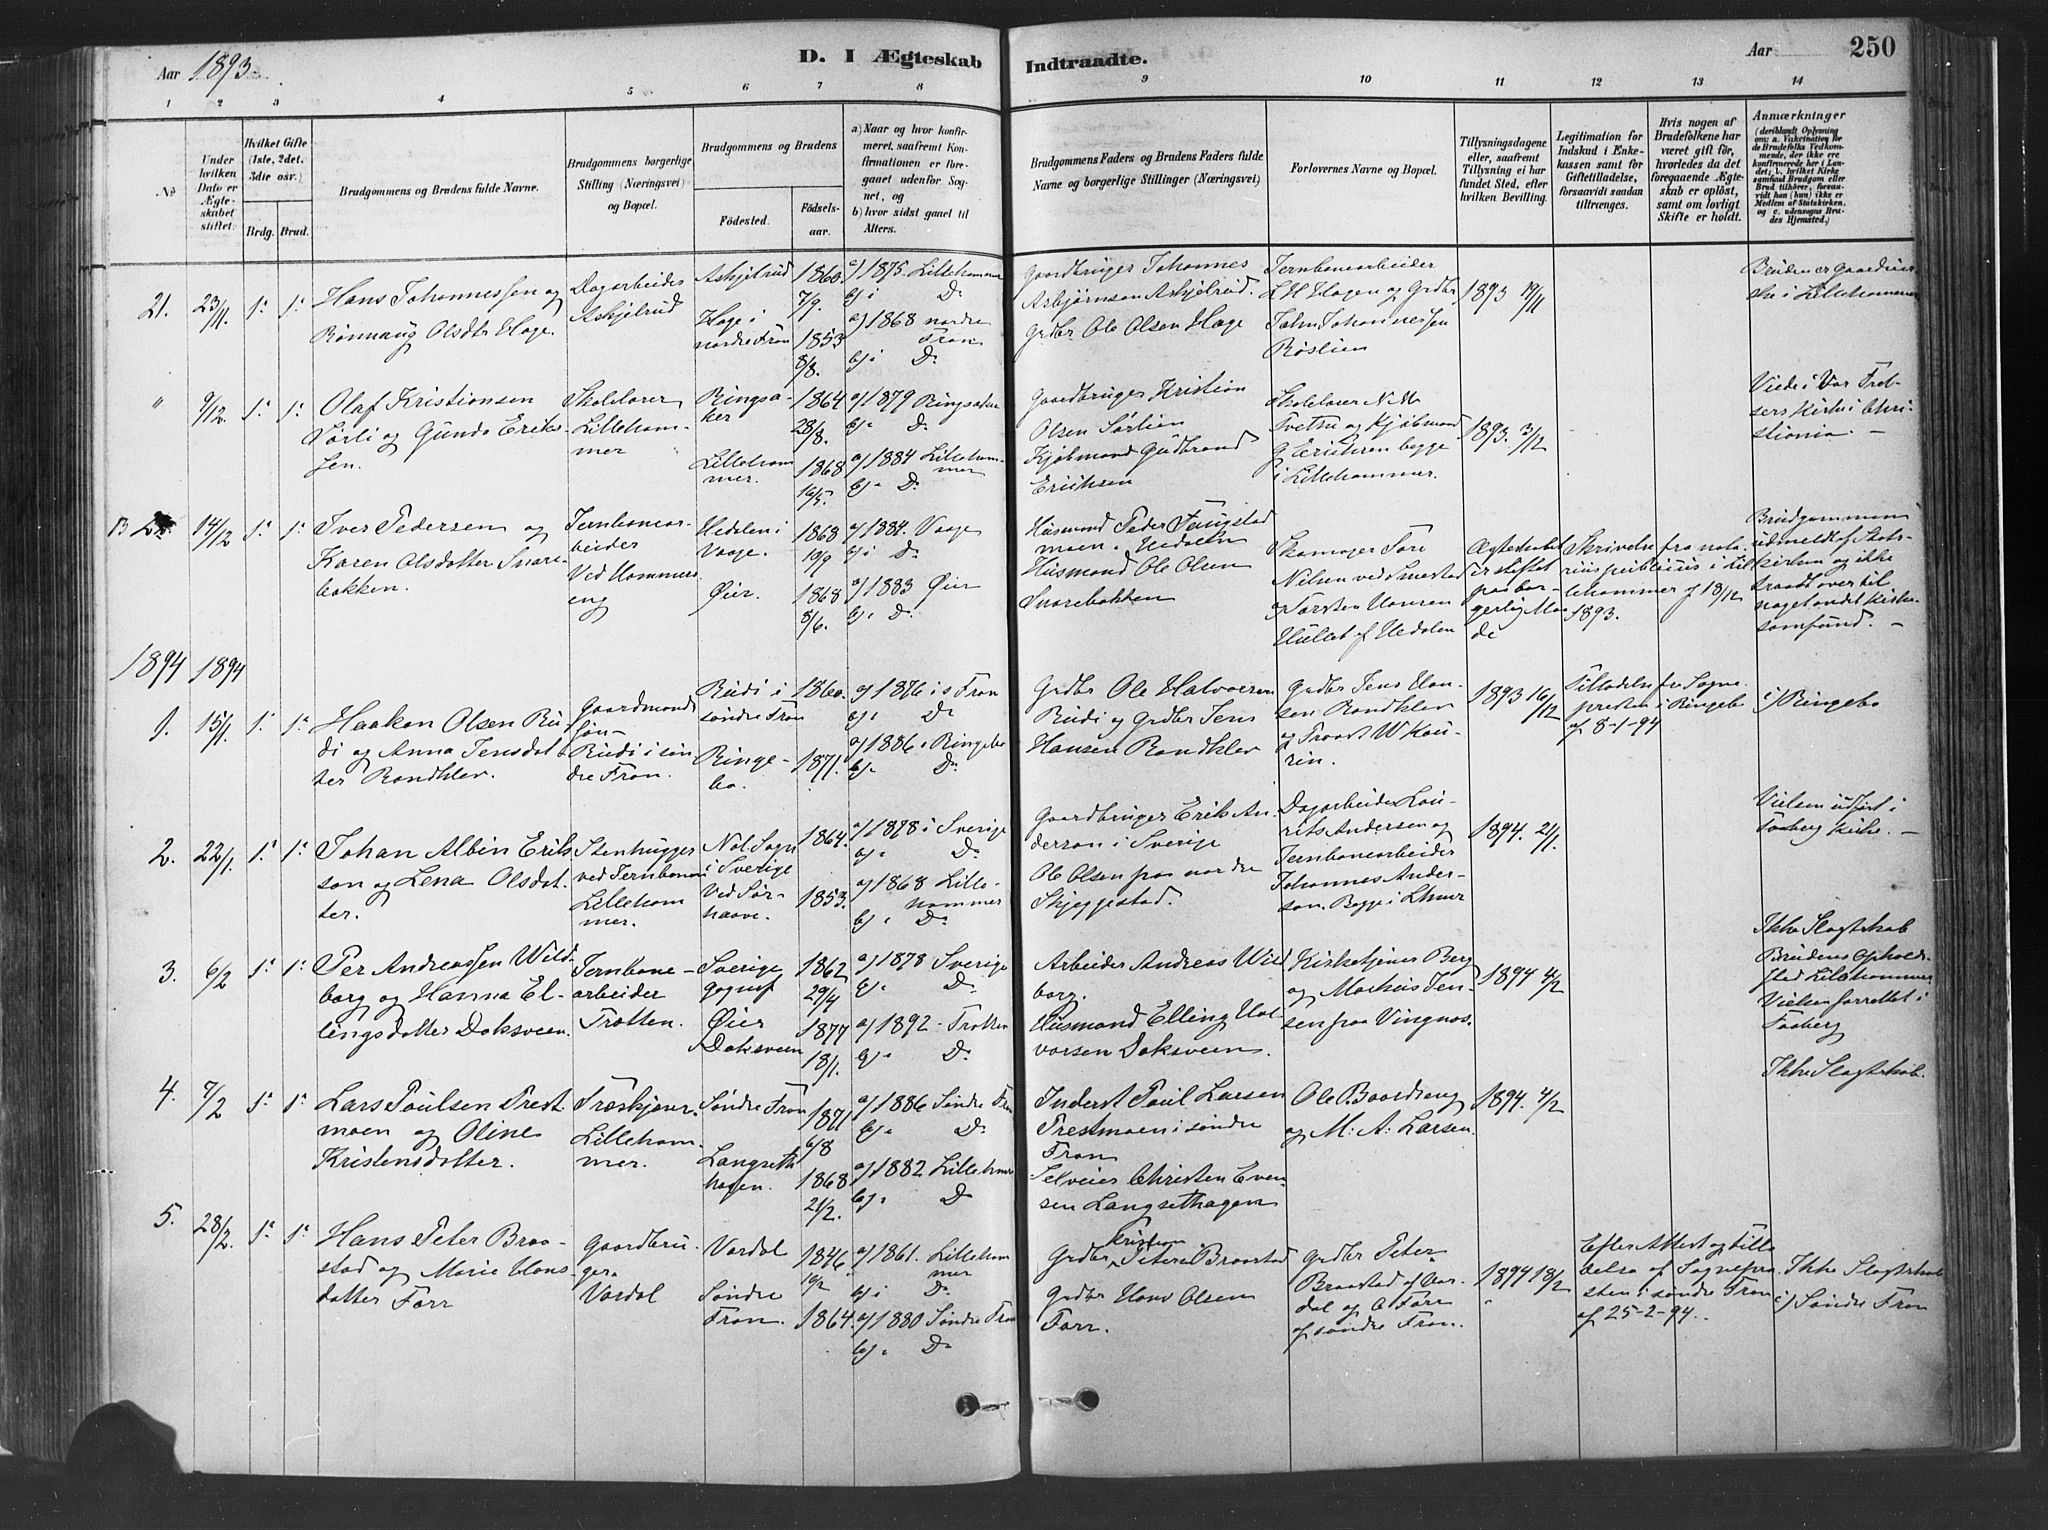 Aar 1893.
D. I Ægteskab Indtraadte.
Aar
250
1 2 3 4 5 6 7 8 9 10 11 12 13 14
No
Under hvilken Dato er Ægteskabet stiftet.
Hvilket Gifte (1ste, 2det, 3die osv.)
Brdg. Brud.
Brudgommens og Brudens fulde Navne.
Brudgommens borgerlige Stilling (Næringsvei) og Bopæl.
Brudgommens og Brudens
Fødested.
Fødselsaar.
a) Naar og hvor konfirmeret, saafremt Konfirmationen er foregaaet udenfor Sognet, og
b) hvor sidst gaaet til Alters.
Brudgommens Faders og Brudens Faders fulde Navne og borgerlige Stillinger (Næringsvei)
Forlovernes Navne og Bopæl.
Tillysningsdagene eller, saafremt Tillysning ei har fundet Sted, efter hvilken Bevilling.
Legitimation for Indskud i Enkekassen samt for Giftetilladelse, forsaavidt saadan tiltrænges.
Hvis nogen af Brudefolkene har været gift før, hvorledes da det foregaaende Ægteskab er opløst, samt om lovligt Skifte er holdt.
Anmærkninger
21. 23/11. 1ste 1ste
Hans Johannessen og
Rönnaug Olsdtr Hage.
Dagarbeider
Askjelrud
Askjelrud
Hage i
nordre Fron
1860.
7/9.
1853
8/8.
a) 1875. Lillehammer
b) i Do
a) 1868 nordre
Fron
b) i Do
Gaardbruger Johannes
Asbjørnsen Askjelrud.
Grdbr Ole Olsen Hage
Jernbanearbeider
L H Hagen og Grdbr
John Johannessen
Røslien
1893 19/11
Lillehammer
" 9/12. 1. 1.
Olaf Kristiansen
Sørli og Gunda Eriksen.
Skolelærer
Lillehammer
Ringsaker
Lillehammer.
1864
28/8.
1868
16/5.
a) 1879 Ringsaker
b) Do
a) 1884 Lillehammer
b) Do
Gaardbruger Kristian
Olsen Sørlien
Kjøbmand Gudbrand
Eriksen
Skolelærer N. M.
Tveten og Kjøbmand
G. Eriksen begge
i Lillehammer.
1893. 3/12
Viede i Vor Frelsers Kirke i Christiania. —
14/12 1. 1.
Iver Pedersen og
Karen Olsdatter Snarebakken.
Jernbanearbeider
Ved Hammerseng
Hedalen i
Vaage.
Øier.
1868
19/9
1868
8/6.
a) 1884. Vaage
b) i Do
a) 1883 Øier
b) Do
Husmand Peder
moen. Hedalen
Husmand Ole Olsen
Snarebakken
Skomager Tore
Nilsen ved Smestad
og Torsten Hansen
Hullet af Hedalen
Ægteskabet
er stiftet
paa borgerlig Maade
Skrivelse fra notarius publicus i Lillehammer af 18/12
1893.
Brudgommen
udmeldt af Statskirken og ikke
traadt over til
noget andet Kirkesamfund. —
1894 1894
1. 15/1. 1. 1.
Haakon Olsen Rudi og Anna Jensdatter Randklev.
Gaardmandssøn
Rudi i søndre Fron.
Rudi i
søndre Fron
Ringebo.
1860.
1871.
a) 1876 i s Fron
b) Do
a) 1886 i Ringebo
b) Do
Grdbr Ole Halvorsen
Rudi og Grdbr Jens
Hansen Randklev
Grdbr Jens Hansen Randklev
og Provst W Kaurin.
1893 16/12
Tilladelse fr Sognepresten i Ringebo
af 8-1-94
c) Ringebo
2. 22/1. 1. 1.
Johan Albin Eriksson og Lena Olsdatter.
Stenhugger
ved Jernbanen
Lillehammer.
Sogn
i Sverige
1864.
1853.
a) 1878 i Sverige
b) Do
a) 1868 Lillehammer
b) Do
Gaardbruger Erik Anderson i Sverige
Ole Olsen paa nordre
Skjeggestad.
Dagarbeider Laurits Andersen og
Jernbanearbeider
Johannes Anderson. Begge i Lhmr
1894. 21/1.
Vielsen udført i
Faaberg Kirke. —
3. 6/2 1. 1.
Per Andreassen Wildborg og Hanna Ellingsdatter Doksveen.
Jernbanearbeider
Tretten.
Sverige
Øier
Doksveen
1862
29/4
1877
18/1.
a) 1878 Sverige
b) Do
a) 1892 - Tretten
b) Do
Arbeider Andreas Wildborg.
Husmand Elling Halvorsen Doksveen.
Kirketjener Berg
og Markus Jensen paa Vingnes.
1894 4/2
Ikke Slagtskab
Brudens Opholdssted Lillehammer
Vielsen forrettet i
Faaberg
4. 7/2 1. 1.
Lars Paulsen Prestmoen og Oline
Kristensdatter.
Træskjærer.
Lillehammer.
Søndre Fron
Langsethhagen.
1871
6/8
1868
21/2.
a) 1886 Søndre Fron
b) Do
a) 1882 Lillehammer
b) Do
Inderst Paul Larsen
Prestmoen i søndre
Fron
Selveier Christen Evensen Langsethagen
Ole Baardseng
og M. A. Larsen.
1894. 4/2
Ikke Slagtskab.
5. 28/2. 1. 1.
Hans Peter Braastad og Marie Hansdatter Forr
Gaardbruger
Vardal
Vardal
Søndre
Fron.
1846
19/2
1864.
a) 1861. Lillehammer
b) i Do
a) 1880 Søndre Fron
b) Do
Kristian
Grdbr Peter Braastad
Grdbr Hans Olsen
Forr.
Grdbr Peter
Braastad af Vardal og O Forr
af søndre Fron.
1894 18/2
Efter Attest og Tilladelse af Sognepresten i søndre Fron
af 25-2-94.
Ikke Slagtskab
c) Søndre Fron